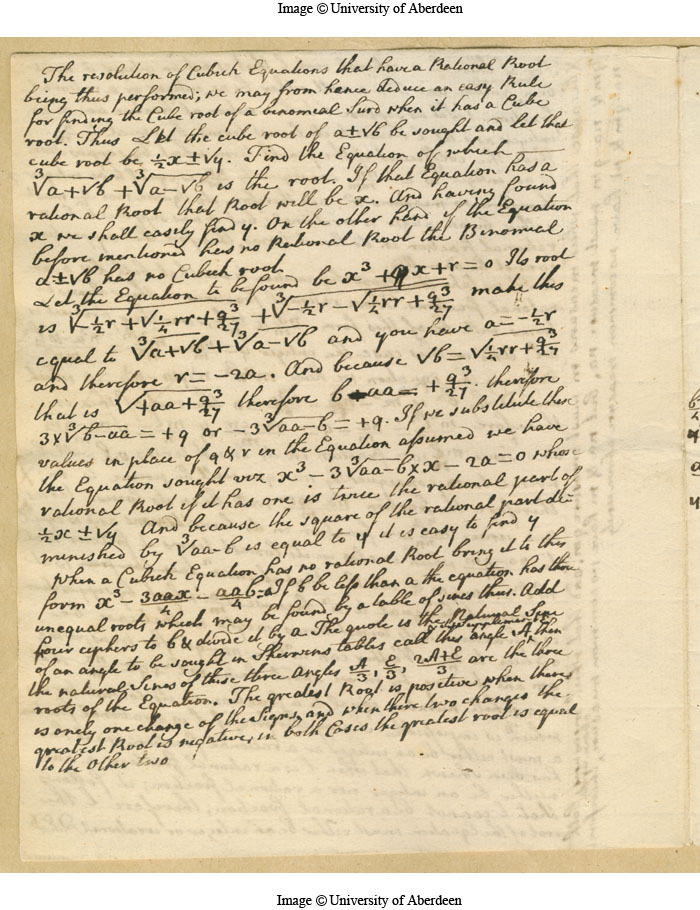 Image © University of Aberdeen
The resolution of Cubick Equations that have a Rational Root
being thus performed; we may from hence deduce an easy Rule
for finding the Cube root of a binomial Surd when it has a Cube
root. Thus Let the cube root of a±√b be sought and let that
cube root be ½x±√y. Find the Equation of which
∛a+√b + ∛a-√b is the root. If that Equation has a
rational Root that Root will be x. And having found
x we shall easily find y. On the other hand if the Equation
before mentioned has no Rational Root the Binomial
a±√b has no Cubick root.
Let the Equation to be found be x³+qx+r=0 Its root
is ∛-½r+√¼rr+q³/27 + ∛-½r-√¼rr+q³/27 make this
equal to ∛a+√b + ∛a-√b and you have a=-½r
and therefore r=-2a. And because √b=√¼rr+q³/27
that is √+aa+q³/27 therefore b-aa=+q³/27. therefore
3×∛b-aa=+q or -3∛aa-b=+q. If we substitute these
values in place of q & r in the Equation assumed we have
the Equation sought viz x³-3∛aa-b×x-2a=0 whose
rational Root if it has one is twice the rational part of
½x±√y And because the square of the rational part di=
minished by ∛aa-b is equal to y it is easy to find y
When a Cubick Equation has no rational Root bring it to this
form x³-3aax/4-aab/4=0 If b be less than a the equation has three
unequal roots which may be found by a table of sines thus. Add
four ciphers to b & divide it by a The quote is the Natural Sine
of an angle to be sought in Sherwins tables call this angle A & its supplement E then
the natural Sines of these three angles A/3, E/3, 2A+E/3 are the three
roots of the Equation. The greatest Root is positive when there
is onely one change of the Signs, and when there two changes the
greatest Root is negative, in both Cases the greatest root is equal
to the other two
Image © University of Aberdeen